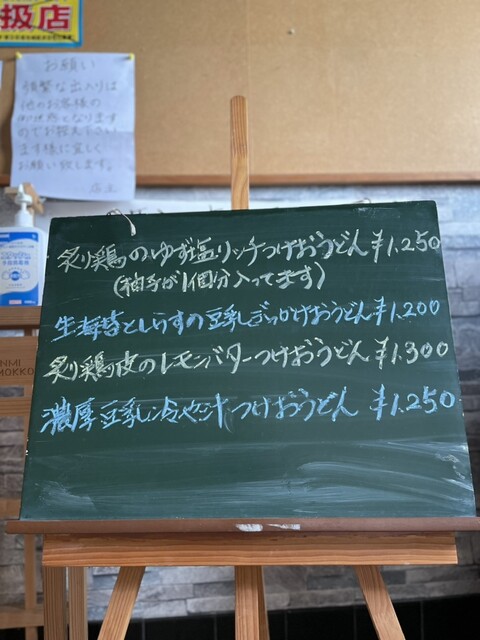 扱店
お願い
頻繁な出入りは
他のお客様の
ますよう宜しく
お願い致します。
店主
炙り鶏のゆず塩リッチつけおうどん ¥1.250
(柚子が1個分入ってます)
生海苔としらすの豆乳ぶっかけおうどん ¥1.200
炙り鶏皮のレモンバターつけおうどん ¥1.300
濃厚豆乳冷や汁つけおうどん ¥1.250